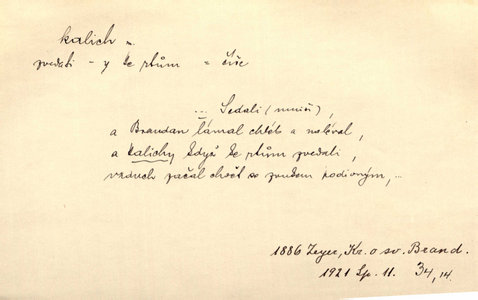 kalich m.
zvedati – y ke rtům = číše
... Sedali (mniši),
a Brandan lámal chléb a naléval,
a kalichy když ke rtům zvedali,
vzduch začal chvět se zvukem podivným, ...
1886 Zeyer, Kr. o sv. Brand.
1921 Sp. 11. 34, 14.